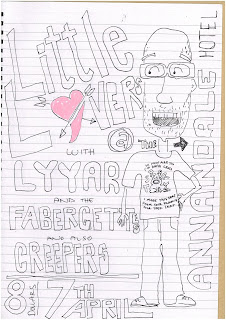 Little
LOVERS
WITH
LYYAR
AND THE
FABERGETTES
AND ALSO
CREEPERS
8 Dollars
7TH APRIL
@ THE
ANNANDALE HOTEL